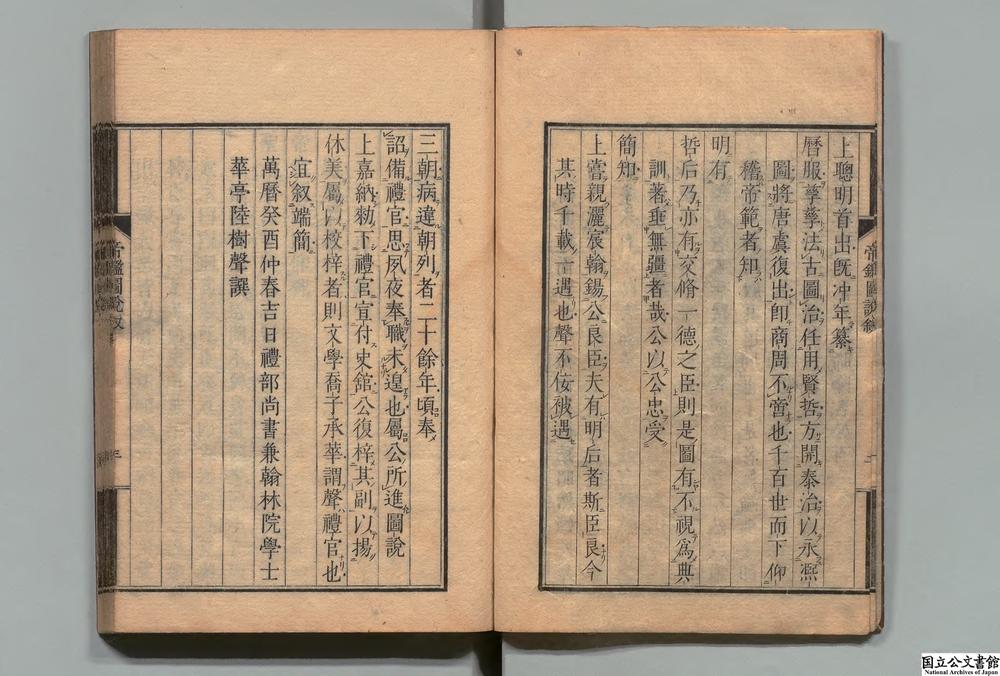 上聰明首出既冲年纂
曆服孳孳法古圖治任用賢哲方開泰治以永熙
圖將唐虞復出卽商周不啻也千百世而下仰
稽帝範者知
明有
哲后乃亦有交脩一德之臣則是圖有不視爲典
訓著垂無疆者哉公以公忠受
簡知
上嘗親灑宸翰錫公良臣夫有明后者斯臣良今
其時千載一遇也聲不佞被遇
帝鑑圖說叙
三朝病違朝列者二十餘年頃奉
詔備禮官思夙夜奉職未遑也屬公所進圖說
上嘉納勑下禮官宣付史館公復梓其副以揚
休美屬以校梓者則文學喬子承華謂聲禮官也
宜叙端簡
萬曆癸酉仲春吉日禮部尚書兼翰林院學士
華亭陸樹聲譔
帝鑑圖說叙
三
国立公文書館
National Archives of Japan